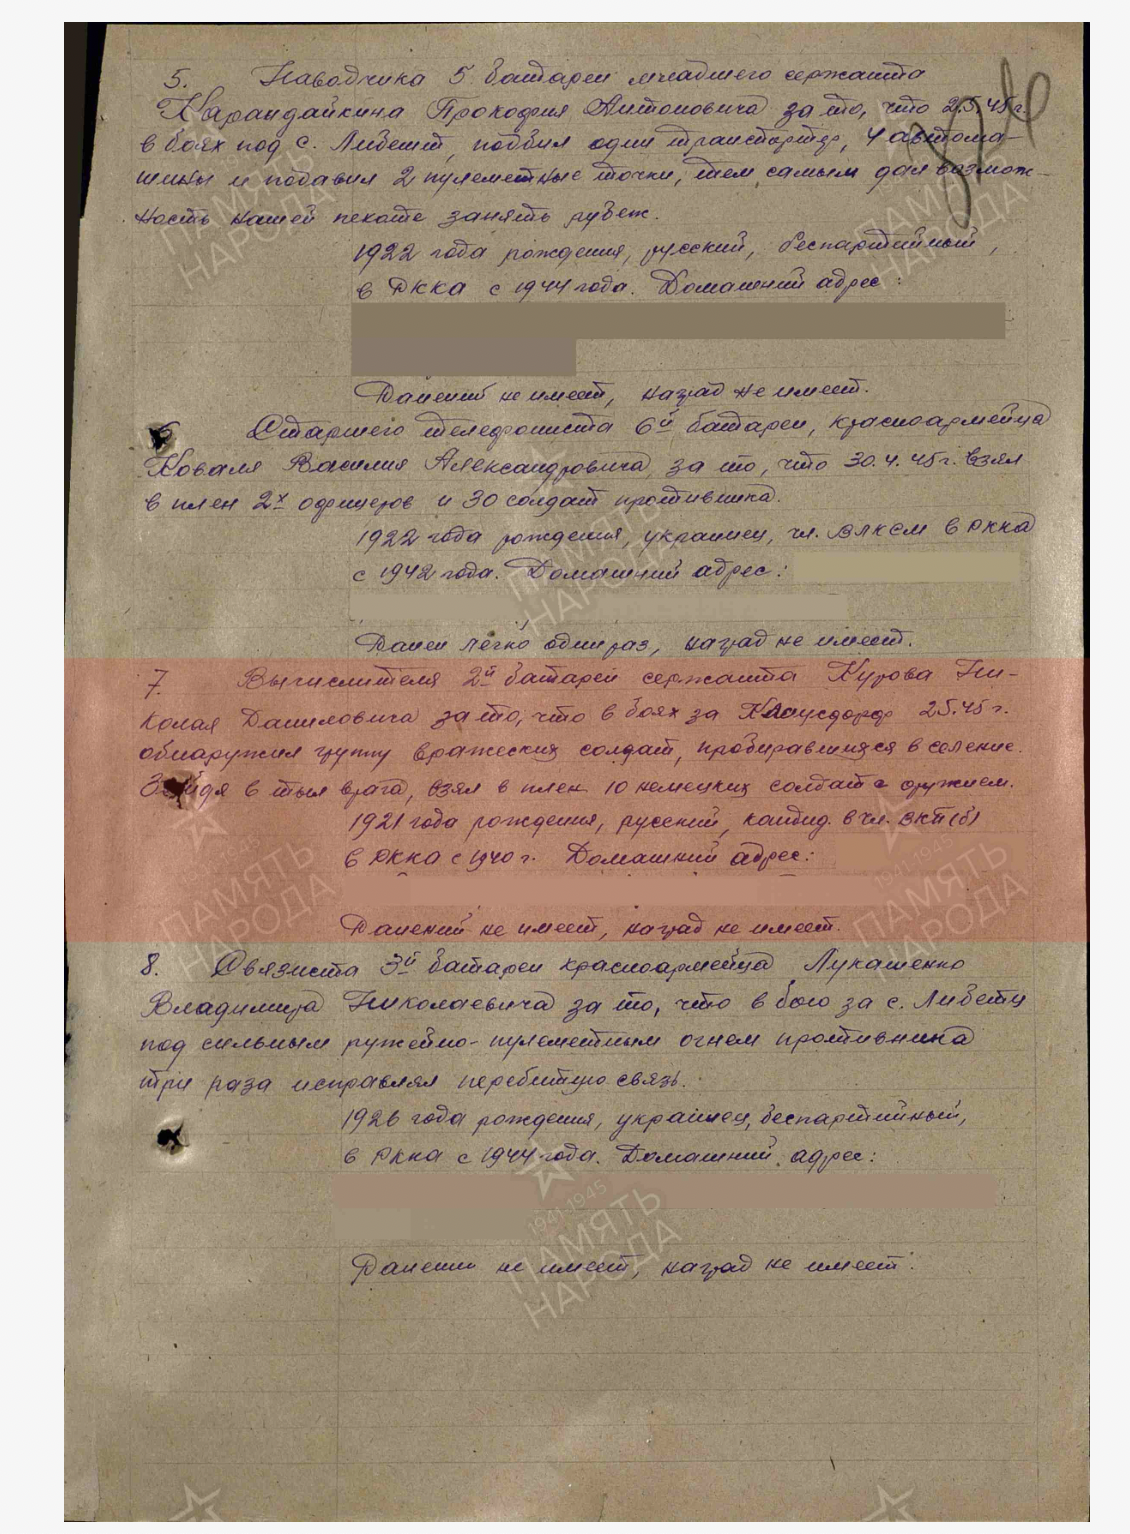 5. Наводчика 5 батареи младшего сержанта
Карандайкина Прокофия Антоновича за то, что 2.5.45 г.
в боях под с. Либешт, подбил один транспортер, 4 автома-
шины и подавил 2 пулеметные точки, тем самым дал возмож-
ность нашей пехоте занять рубеж.
1922 года рождения, русский, беспартийный,
в РККА с 1944 года. Домашний адрес:
Ранений не имеет, наград не имеет.
6 Старшего телефониста 6й батареи, красноармейца
Коваля Василия Александровича за то, что 30.4.45 г. взял
в плен 2х офицеров и 30 солдат противника.
1922 года рождения, украинец, чл. ВЛКСМ в РККА
с 1942 года. Домашний адрес:
Ранен легко один раз, наград не имеет.
7. Вычислителя 2й батареи сержанта Курова Ни-
колая Даниловича за то, что в боях за Клаусдорф 2.5.45 г.
обнаружил группу вражеских солдат, пробиравшихся в селение.
Зайдя в тыл врага, взял в плен 10 немецких солдат с оружием.
1921 года рождения, русский, кандид. в чл. ВКП(б)
в РККА с 1940 г. Домашний адрес:
Ранений не имеет, наград не имеет.
8. Связиста 3й батареи красноармейца Лукашенко
Владимира Николаевича за то, что в бою за с. Либетц
под сильным ружейно-пулеметным огнем противника
три раза исправлял перебитую связь.
1926 года рождения, украинец, беспартийный,
в РККА с 1944 года. Домашний адрес:
1941-1945
ПАМЯТЬ
НАРОДА
Ранений не имеет, наград не имеет.